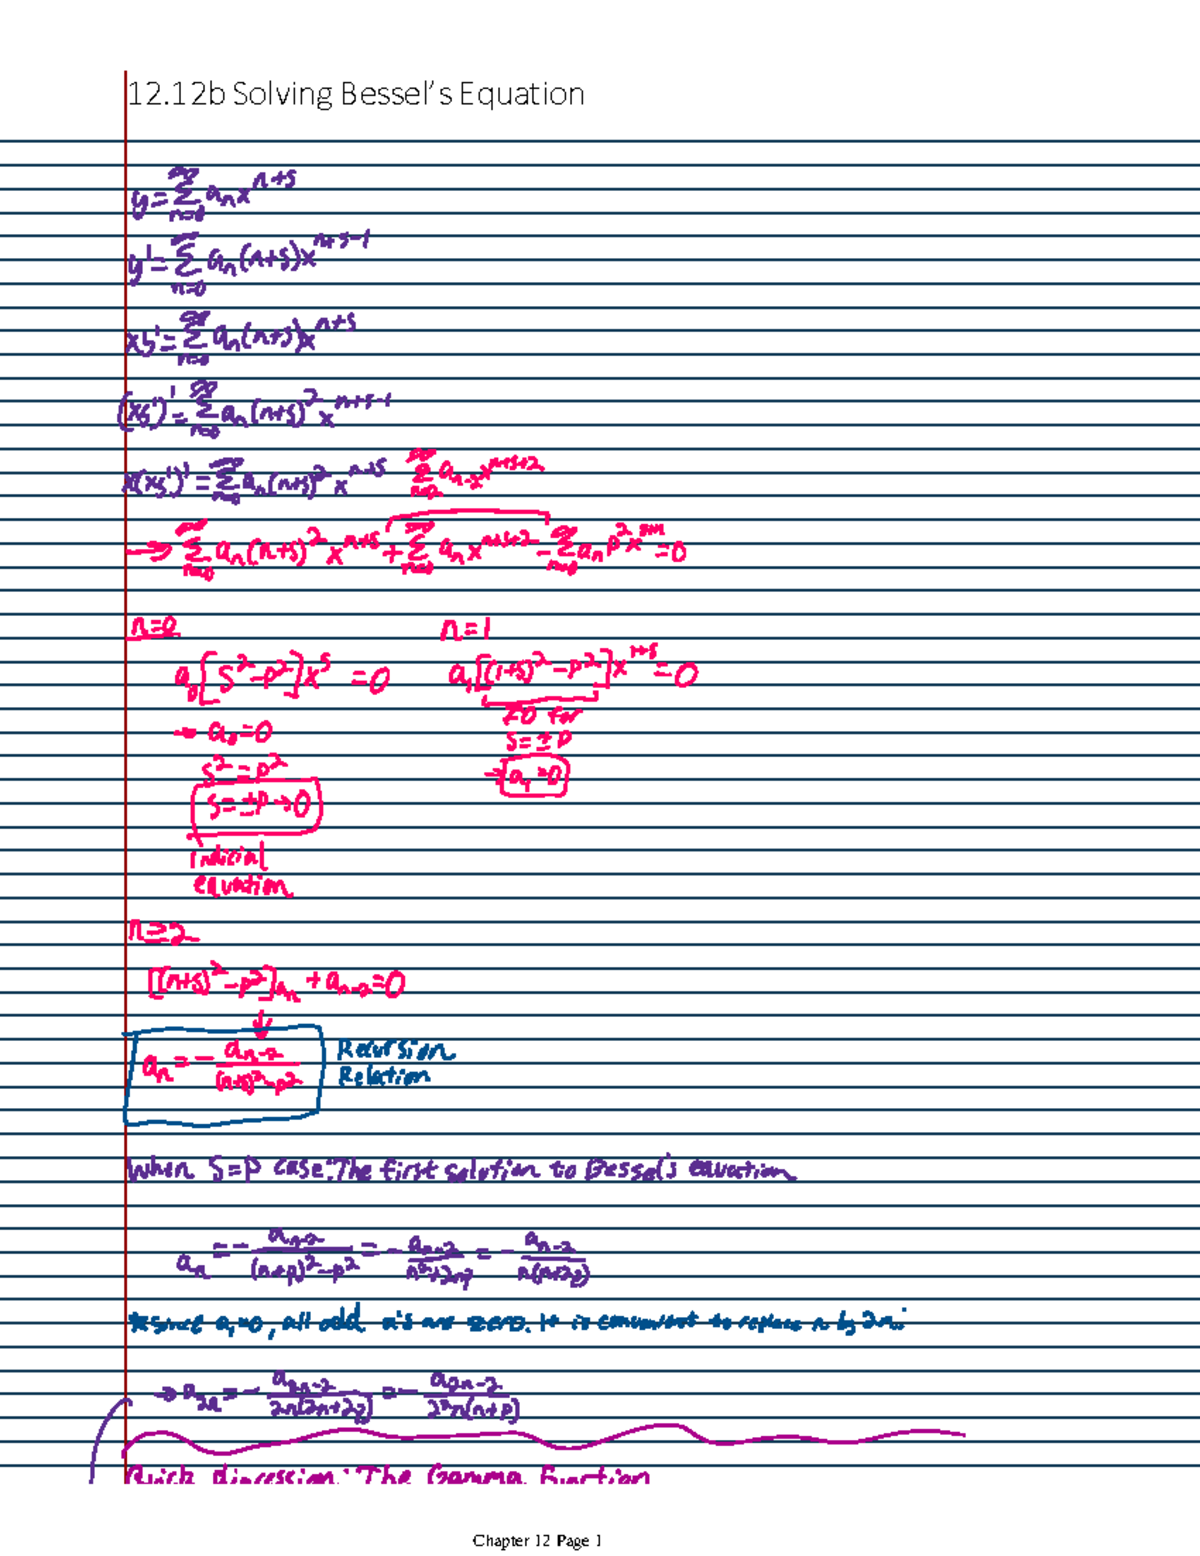 12.12b Solving Bessel's Equation
y = ∑_{n=0}^{∞} a_n x^{n+s}
y' = ∑_{n=0}^{∞} a_n (n+s) x^{n+s-1}
xy' = ∑_{n=0}^{∞} a_n (n+s) x^{n+s}
(xy')' = ∑_{n=0}^{∞} a_n (n+s)^2 x^{n+s-1}
x(xy')' = ∑_{n=0}^{∞} a_n (n+s)^2 x^{n+s}
∑_{n=2}^{∞} a_{n-2} x^{n+s+2}
→ ∑_{n=0}^{∞} a_n (n+s)^2 x^{n+s} + ∑_{n=0}^{∞} a_n x^{n+s+2} - ∑_{n=0}^{∞} a_n p^2 x^{s+n} = 0
n=0
a_0 [s^2 - p^2] x^s = 0
→ a_0 = 0
s^2 = p^2
s = ±p → 0
indicial
equation
n=1
a_1 [(1+s)^2 - p^2] x^{1+s} = 0
≠0 for
s = ±p
→ a_1 = 0
n≥2
[(n+s)^2 - p^2] a_n + a_{n-2} = 0
↓
a_n = - a_{n-2} / ((n+s)^2 - p^2)
Recursion
Relation
When s=p case: The first solution to Bessel's equation
a_n = - a_{n-2} / ((n+p)^2 - p^2) = - a_{n-2} / (n^2+2np) = - a_{n-2} / (n(n+2p))
*since a_1=0, all odd a's are zero. It is convenient to replace n by 2n:
→ a_{2n} = - a_{2n-2} / (2n(2n+2p)) = - a_{2n-2} / (2^2 n(n+p))
Quick digression: The Gamma Function
Chapter 12 Page 1